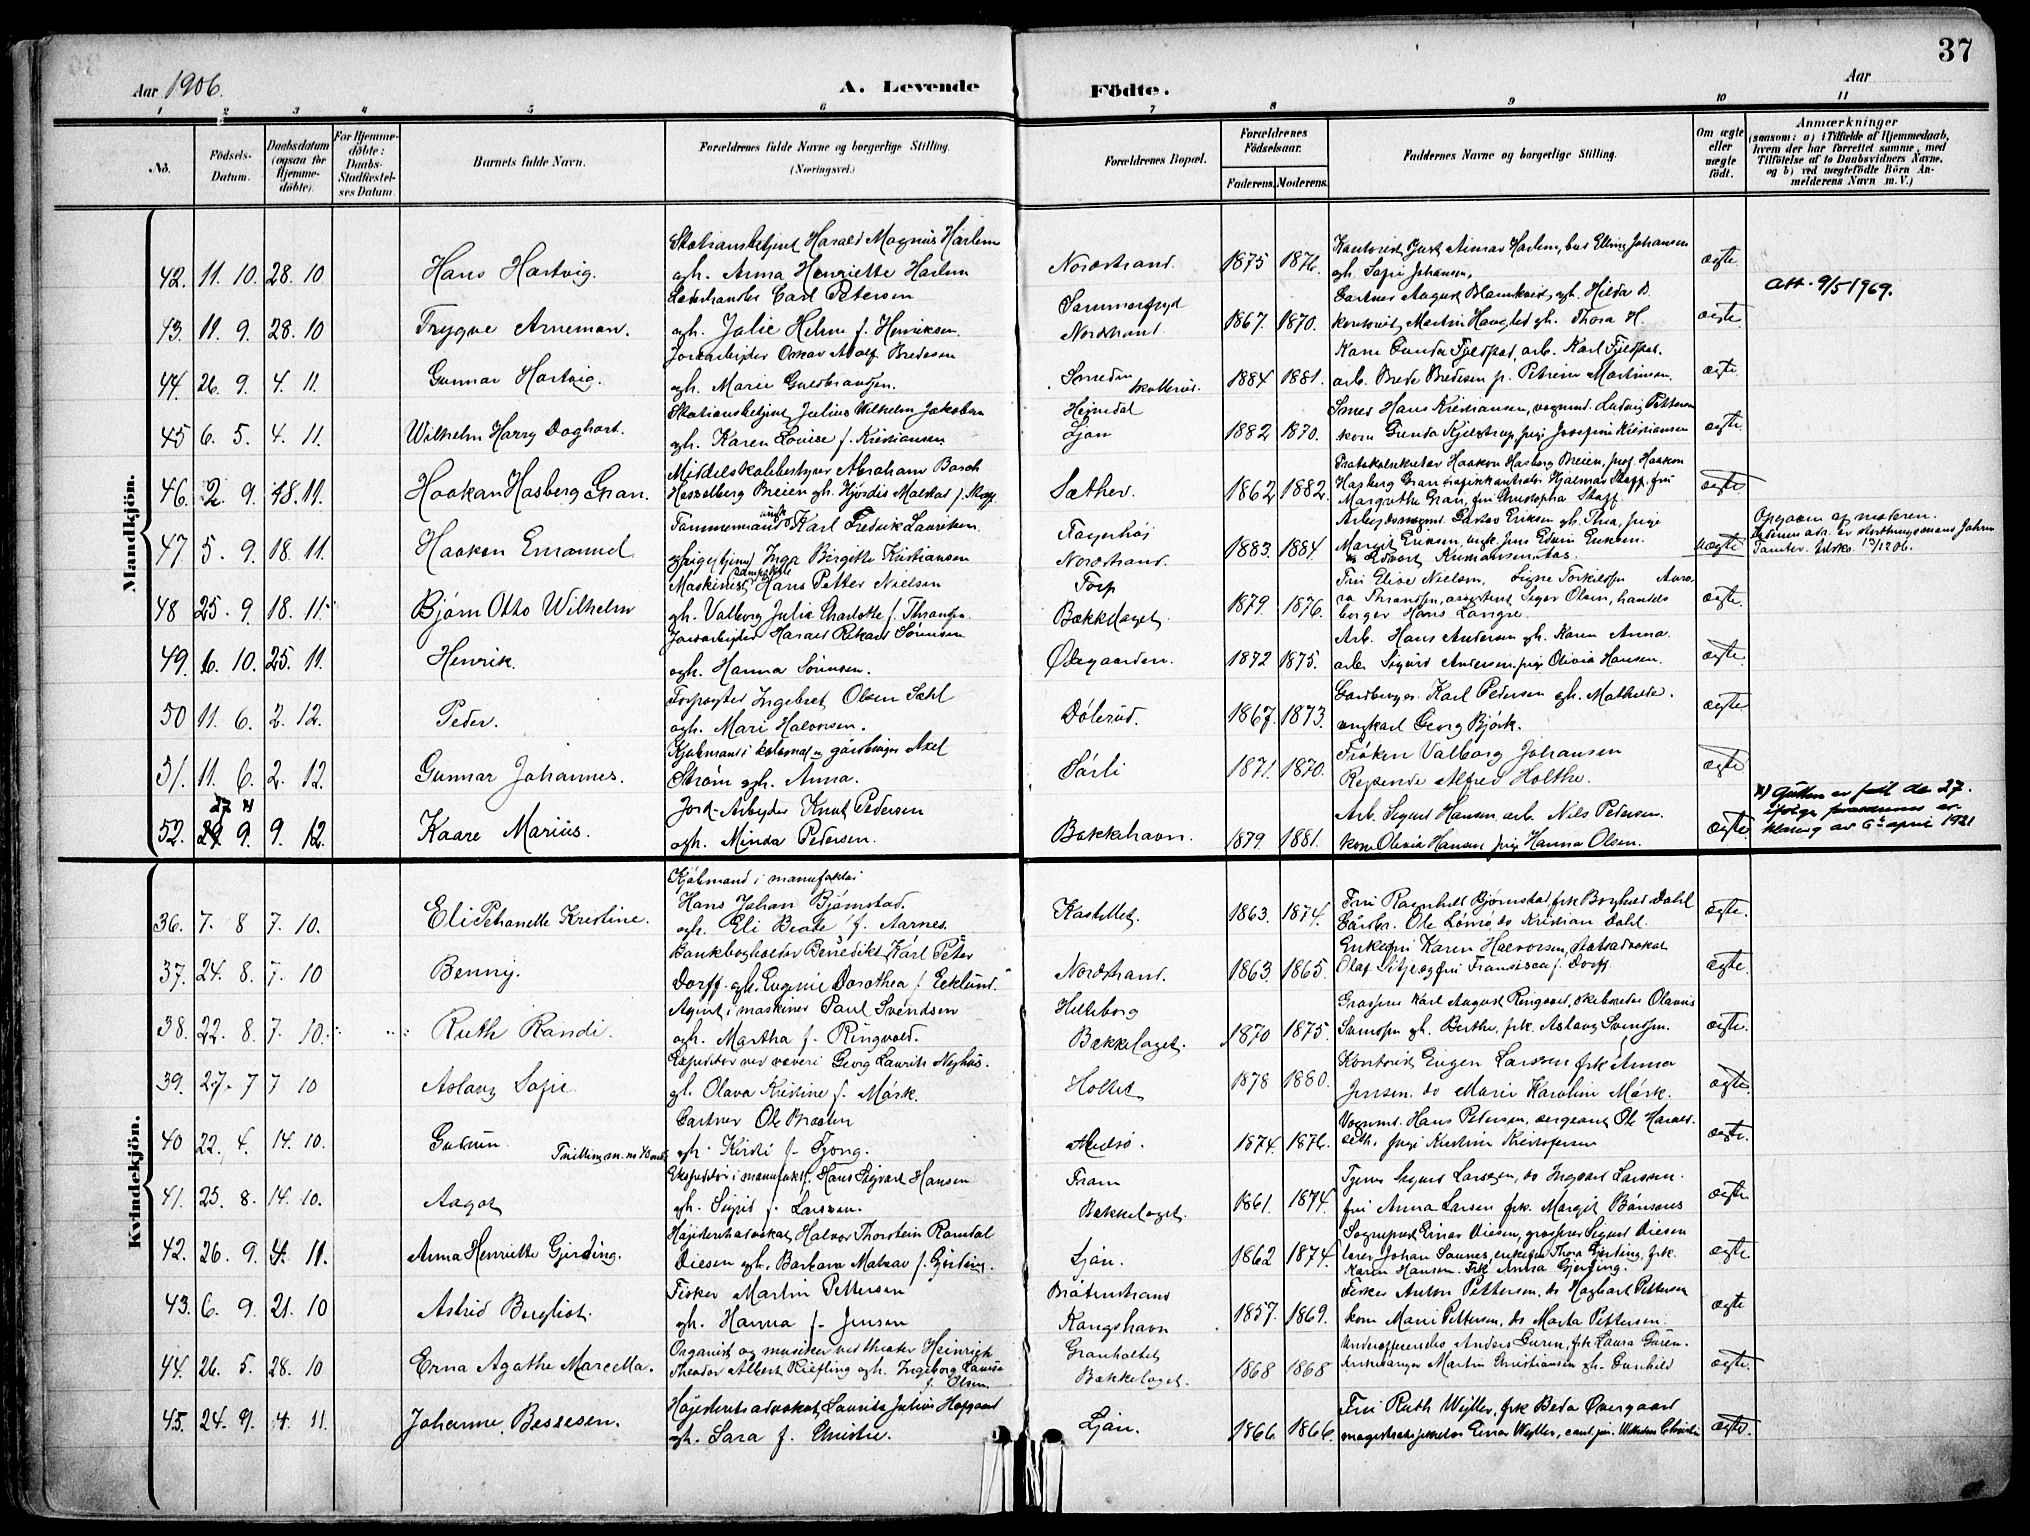 37
Aar 1906.
A. Levende
Födte.
Aar
1 2 3 4 5 6 7 8 9 10 11
No.
Födsels-
Datum.
Daabsdatum
(ogsaa for
Hjemme-
döbte).
For Hjemme-
döbte:
Daabs-
Stadfæstel-
ses Datum.
Barnets fulde Navn.
Forældrenes fulde Navne og borgerlige Stilling.
(Næringsvei.)
Forældrenes Bopæl.
Forældrenes
Födselsaar.
Faderens. Moderens.
Faddernes Navne og borgerlige Stilling.
Om ægte
eller
uægte
födt.
Anmærkninger
(saasom: a) i Tilfælde af Hjemmedaab,
hvem der har forrettet samme, med
Tilföielse af to Daabsvidners Navne,
og b) ved uægtefödte Börn An-
melderens Navn m. V.)
Mandkjön.
42. 11. 10. 28. 10 Hans Hartvig.
Stationsbetjent Harald Magnus Harlem
ogh. Anna Henriette Harlem
Nordstrand. 1875 1876.
Kontorist Just Aimar Harlem, Ellling Johansen
gh. Sofie Johansen,
ægte
att. 9/5 1969.
43. 11. 9. 28. 10 Trygve Arneman.
Læderhandler Carl Petersen
ogh. Julie Helene f. Henriksen.
Sommerfryd
Nordstrand. 1867. 1870.
Gartner August Blomkvist, ogh. Hilda B.
kontorist Martin Haugsted gh. Thora H.
ægte
44. 26. 9. 4. 11. Gunnar Hartvig.
Jordarbejder Oskar Adolf Bredesen
ogh. Marie Guldbrandsen.
Smeden
1884 1881.
Kone Gunda Fjeldstad, arb. Karl Fjeldstad.
arb. Brede Bredesen p. Petrine Martinsen.
ægte
45 6. 5. 4. 11. Wilhelm Harry Daghart.
Stationsbetjent Julius Wilhelm Jakobsen
gh. Karen Louise f. Kristiansen
Heimdal
Ljan 1882 1870.
Smed Hans Kristiansen, vognmd. Ludvig Pettersen
kone Gunda Kjelstrup, pige Josefine Kristiansen
ægte.
46. 2. 9. 18. 11. Haakon Hasberg Gran.
Middelskolebestyrer Abraham Bosch
Hasselberg Breien gh. Hjördis Malstad f. Staff.
Sæther. 1862 1882.
Protokolsekretær Haakon Hasberg Breien, prof. Haakon
Hasberg Gran, Hjalmar Staff. fru
Margrethe Gran, frk Christopha Staff
ægte
47 5. 9. 18. 11. Haakon Emanuel
Tømmermand ungk. Karl Fredrik Lauritsen
Inga Birgitte Kristiansen
Fagerhöj
Nordstrand. 1883. 1884.
Arbejdsmand Gustav Eriksen gh. Thea, pige
Margit Eriksen, ungk. Jens Edvin Eriksen
Edvart Kristiansen
uægte
Opgaven af moderen.
48 25. 9. 18. 11. Bjørn Otto Wilhelm
Maskinist Hans Petter Nielsen
gh. Valborg Julie Charlotte f. Thrandsen.
Torp
Bækkelaget. 1879. 1876.
Fru Elise Nielsen, Signe Torkildsen
Thrandsen, assistent Sigar Olsen, handels
borger Hans Langre.
ægte
49. 6. 10. 25. 11. Henrik.
Jordarbejder Harald Rikard Sørensen
ogh. Hanna Sørensen.
Ødegaarden. 1872 1875.
Arb. Hans Andersen gh. Karen Anna
arb. Sigurd Andersen, pige Olivia Hansen.
ægte
50 11. 6. 2. 12. Peder.
Forpagter Ingebret Olsen Sæhl
ogh. Mari Halvorsen.
Dölerud. 1867. 1873.
Gardbruger Karl Pedersen gh. Mathilde.
ungkarl Georg Björk.
ægte
51. 11. 6. 2. 12. Gunnar Johannes.
Kjøbmand i kolonial og gårdbruger Axel
Strøm ogh. Anna.
Sørli 1871. 1870.
Frøken Valborg Johansen
Rejsende Alfred Holthe.
ægte
52. 27 29 9 9. 12. Kaare Marius.
Jord-Arbejder Knut Pedersen
ogh. Minda Pedersen.
Bækkehavn. 1879 1881.
Arb. Sigurd Hansen, arb. Nils Pedersen.
kone Olivia Hansen, pige Hanna Olsen.
ægte
x) Gutten er født de 27.
ifølge
av 6te april 1921
Kvindekjön.
36. 7. 8 7. 10. Eli Petranelle Kristine.
Kjøbmand i manufaktur
Hans Johan Bjørnstad.
ogh. Eli Beate f. Aarnes.
Kastellet. 1863. 1874.
Fru Ragnhild Bjørnstad frk Borghild Dahl
Gårdbr. Ole Lømo, do Kristian Dahl.
ægte.
37. 24. 8. 7. 10 Benny.
Bankbogholder Benedikt Karl Peter
Dorff. gh. Eugenie Dorothea f. Ecklund.
Nordstrand. 1863. 1865.
Enkefru Karen Halvorsen, Statsadvokat
Olaf fru Fransisca f. Dorff.
ægte
38. 22. 8. 7. 10. Ruth Randi.
Agent i maskiner Paul Svendsen
ogh. Martha f. Ringvold.
Hilleborg
Bækkelaget. 1870 1875.
Grosserer Karl August Ringvold, Olavus
Svendsen gh. Berthe, frk. Aslaug Svendsen.
ægte
39. 27. 7 7 10 Aslaug Sofie
Expeditør ved væveri Georg Laurits Nyhus.
gh. Olava Kristine f. Mørk.
Holtet 1878 1880.
Kontorist Eugen Larssen, frk Anna
Jensen, do Marie Karoline Mørk.
ægte
40 22. 4. 14. 10. Gudrun. Tvilling m. no
Gartner Ole Braaten
gh. Kirsti f. Tjong.
1874. 1876.
Vognmd. Hans Petersen, sergeant Ole Harald-
seth. pige Kristine Kristofersen
ægte.
41. 25. 8. 14. 10. Aagot
Ekspeditör i manufakt. Hans Sigvart Hansen
gh. Sigrid f. Larssen.
Fram
Bækkelaget. 1861. 1874.
Sigurd Larssen, do Ingvart Larssen.
fru Anna Larsen frk. Margit Bönsnes
ægte
42. 26. 9. 4. 11. Anna Henriette Gjerding.
Højesteretsadvokat Halvor Thorstein Romdal
Diesen ogh. Barbara Matzau f. Gjerding.
Ljan. 1862 1874.
Sogneprest Einar Diesen, grosserer Sigurd Diesen
lærer Johan Saunes, enkefru Thora Gjerding, frk.
Karen Hansen. Frk Anna Gjerding.
ægte
43. 6. 9. 21. 10 Astrid Bergliot.
Fisker Martin Pettersen
gh. Hanna f. Jensen
Bråtenstrand
Kongshavn 1857. 1869.
Fisker Anton Pettersen, do Hagbart Pettersen
kone Marie Pettersen, do Marta Pettersen.
ægte
44. 26. 5. 28. 10 Erna Agathe Marcella.
Organist og musiker ved theater Heinrich
Theodor Albert Kiefling ogh. Ingeborg Lovise
f. Olsen
Granholtet
Bækkelaget. 1868 1868
Underofficer Anders Guren, frk Laura Guren.
Martin Christiansen gh. Gunhild
ægte.
45. 24. 9. 4. 11. Johanne Bessesen.
Højesteretsadvokat Laurits Julius Hofgaard
gh. Sara f. Christie.
Ljan. 1866 1866.
Fru Ruth Wyller, frk Beda Overgaard
Einar Wyller, cand. jur. Wilhelm Christie
ægte